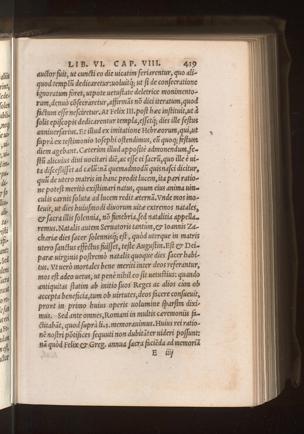 LIB. VI. CAP. VIII. 419
auctor fuit, ut cuncti eo die uicatim feriarentur, quo ali-
quod templũ dedicaretur: uoluitq́; ut si de consecratione
ignoratum foret, utpote uetustate deletrice monimento-
rum, denuò cõsecraretur, affirmãs nõ dici iteratum, quod
factum esse nesciretur. At Felix III. post hæc instituit, ut à
solis episcopis dedicarentur templa, essetq́; dies ille festus
anniuersarius. Et illud ex imitatione Hebræorum, qui, ut
suprà ex testimonio Iosephi ostendimus, eũ quoq; festum
diem agebant. Ceterùm illud appositè admonendum, fe-
stũ alicuius diui uocitari diẽ, ac esse ei sacrũ, quo ille è ui-
ta discessisset ad cælũ: nã quemadmodũ quis nasci dicitur,
quũ de utero matris in hanc prodit lucem, ita pari ratio-
ne potest meritò existimari natus, quum eius anima uin-
culis carnis soluta ad lucem redit æternã. Unde mos ino-
leuit, ut dies huiusmodi diuorum uitæ extremos natales,
& sacra illis solennia, nõ funebria, sed natalitia appella-
remus. Natalis autem Seruatoris tantùm, & Ioannis Za-
chariæ dies sacer solennisq́; est, quòd uterque in matris
utero sanctus effectus fuisset, teste Augustin. Est & Dei-
paræ uirginis postremò natalis quoque dies sacer habi-
tus. Ut uerò mortales bene meriti inter deos referantur,
mos est adeo uetus, ut penè nihil eo sit uetustius: quando
antiquitas statim ab initio suos Reges ac alios cùm ob
accepta beneficia, tum ob uirtutes, deos facere consueuit,
prout in primo huius operis uolumine sparsim dixi-
mus. Sed ante omnes, Romani in multis cæremoniis fa-
ctitabãt, quod suprà li. 3. memorauimus. Huius rei ratio-
nẽ nostri põtifices sequuti non dubitãter uideri possunt:
nã quòd Felix & Greg. annua sacra faciẽda ad memoriã
E iij